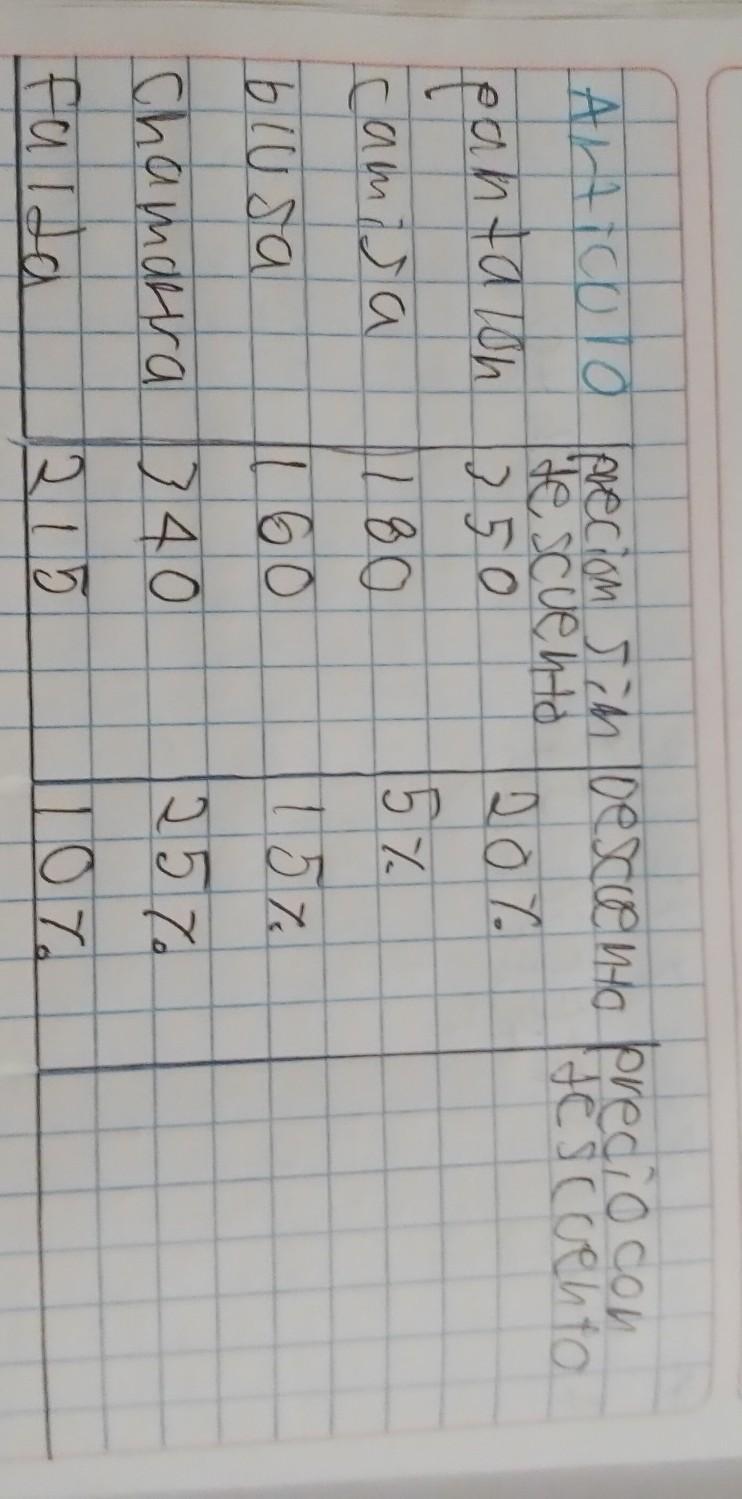 Articulo precion sin descuento Descuento precio con descuento
pantalon 350 20%
camisa 180 5%
blusa 160 15%
chamarra 340 25%
falda 215 10%